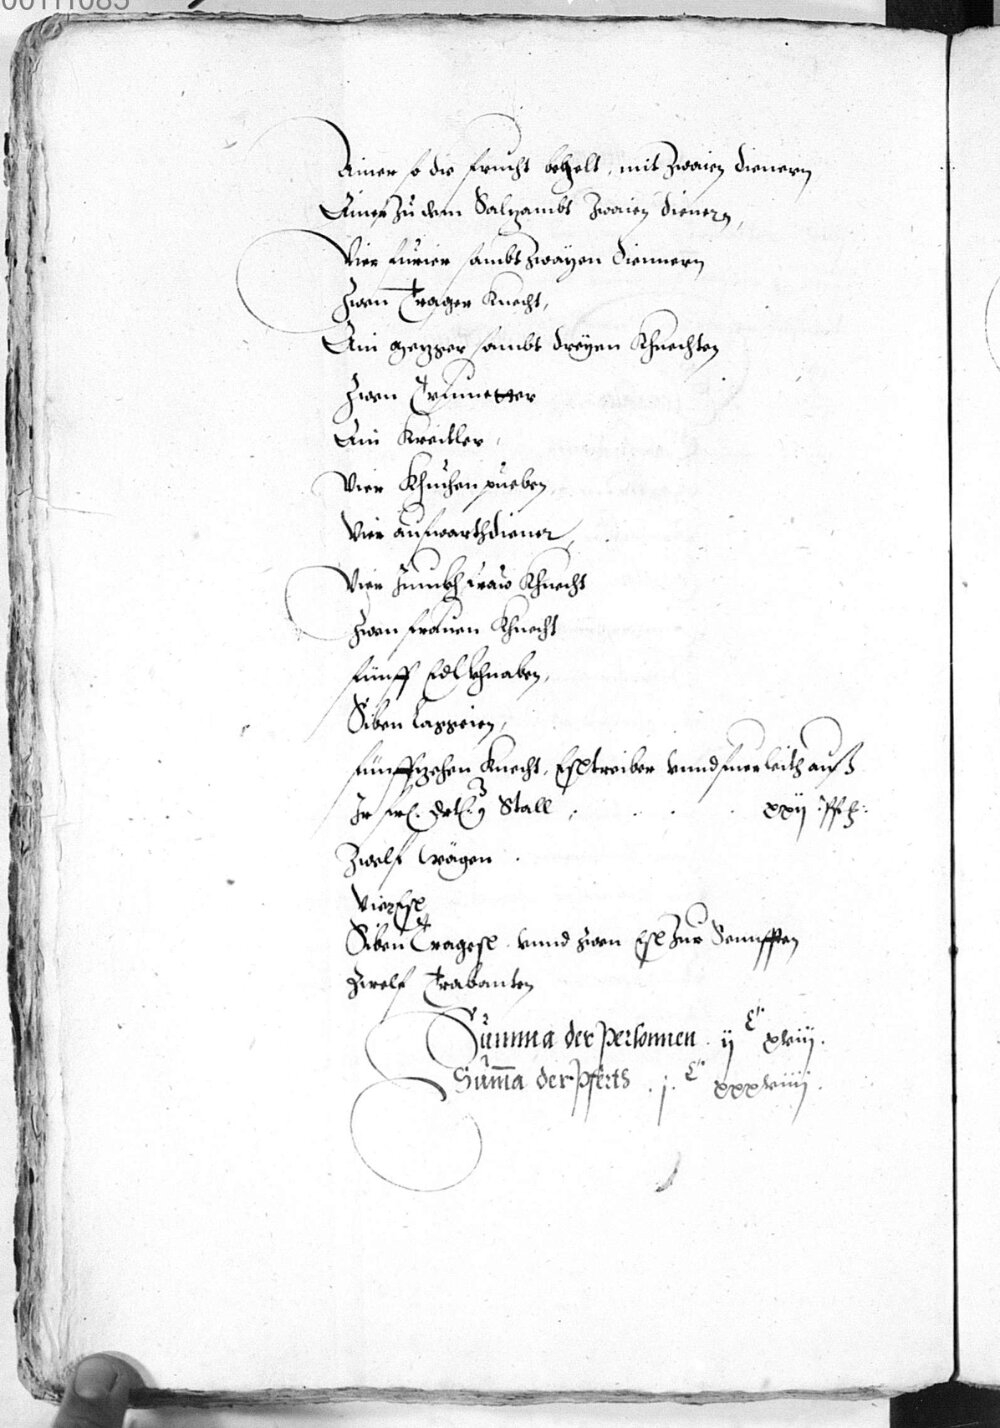 00111085
Ainer so die frucht behelt, mit zwaien dienern
Einer zu dem Salzambt zwaien dienern,
Vier furier sambt zwayen diennern
Zwen Trager Knecht,
Ain mezger sambt dreyen Khnechten
Zwen Trumetter
Ain Kreitler,
Vier Khuchenpueben,
Vier aufwarthdiener,
Vier Junckhfraw Khnecht
Zwen frauen Khnecht
fünff Edlkhnaben,
Siben Laggeien,
fünffzehen Knecht, Esltreiber vnnd fuerleith auß
Ir frl. Stall xxij
Zwelf Wägen
Vier Esl
Siben Tragesl vnnd zwen Esl zur Sennfften
Zwelf Trabanten
Summa der Personnen ij C xviij.
Suma der Pferts . j. C xxxviiij.